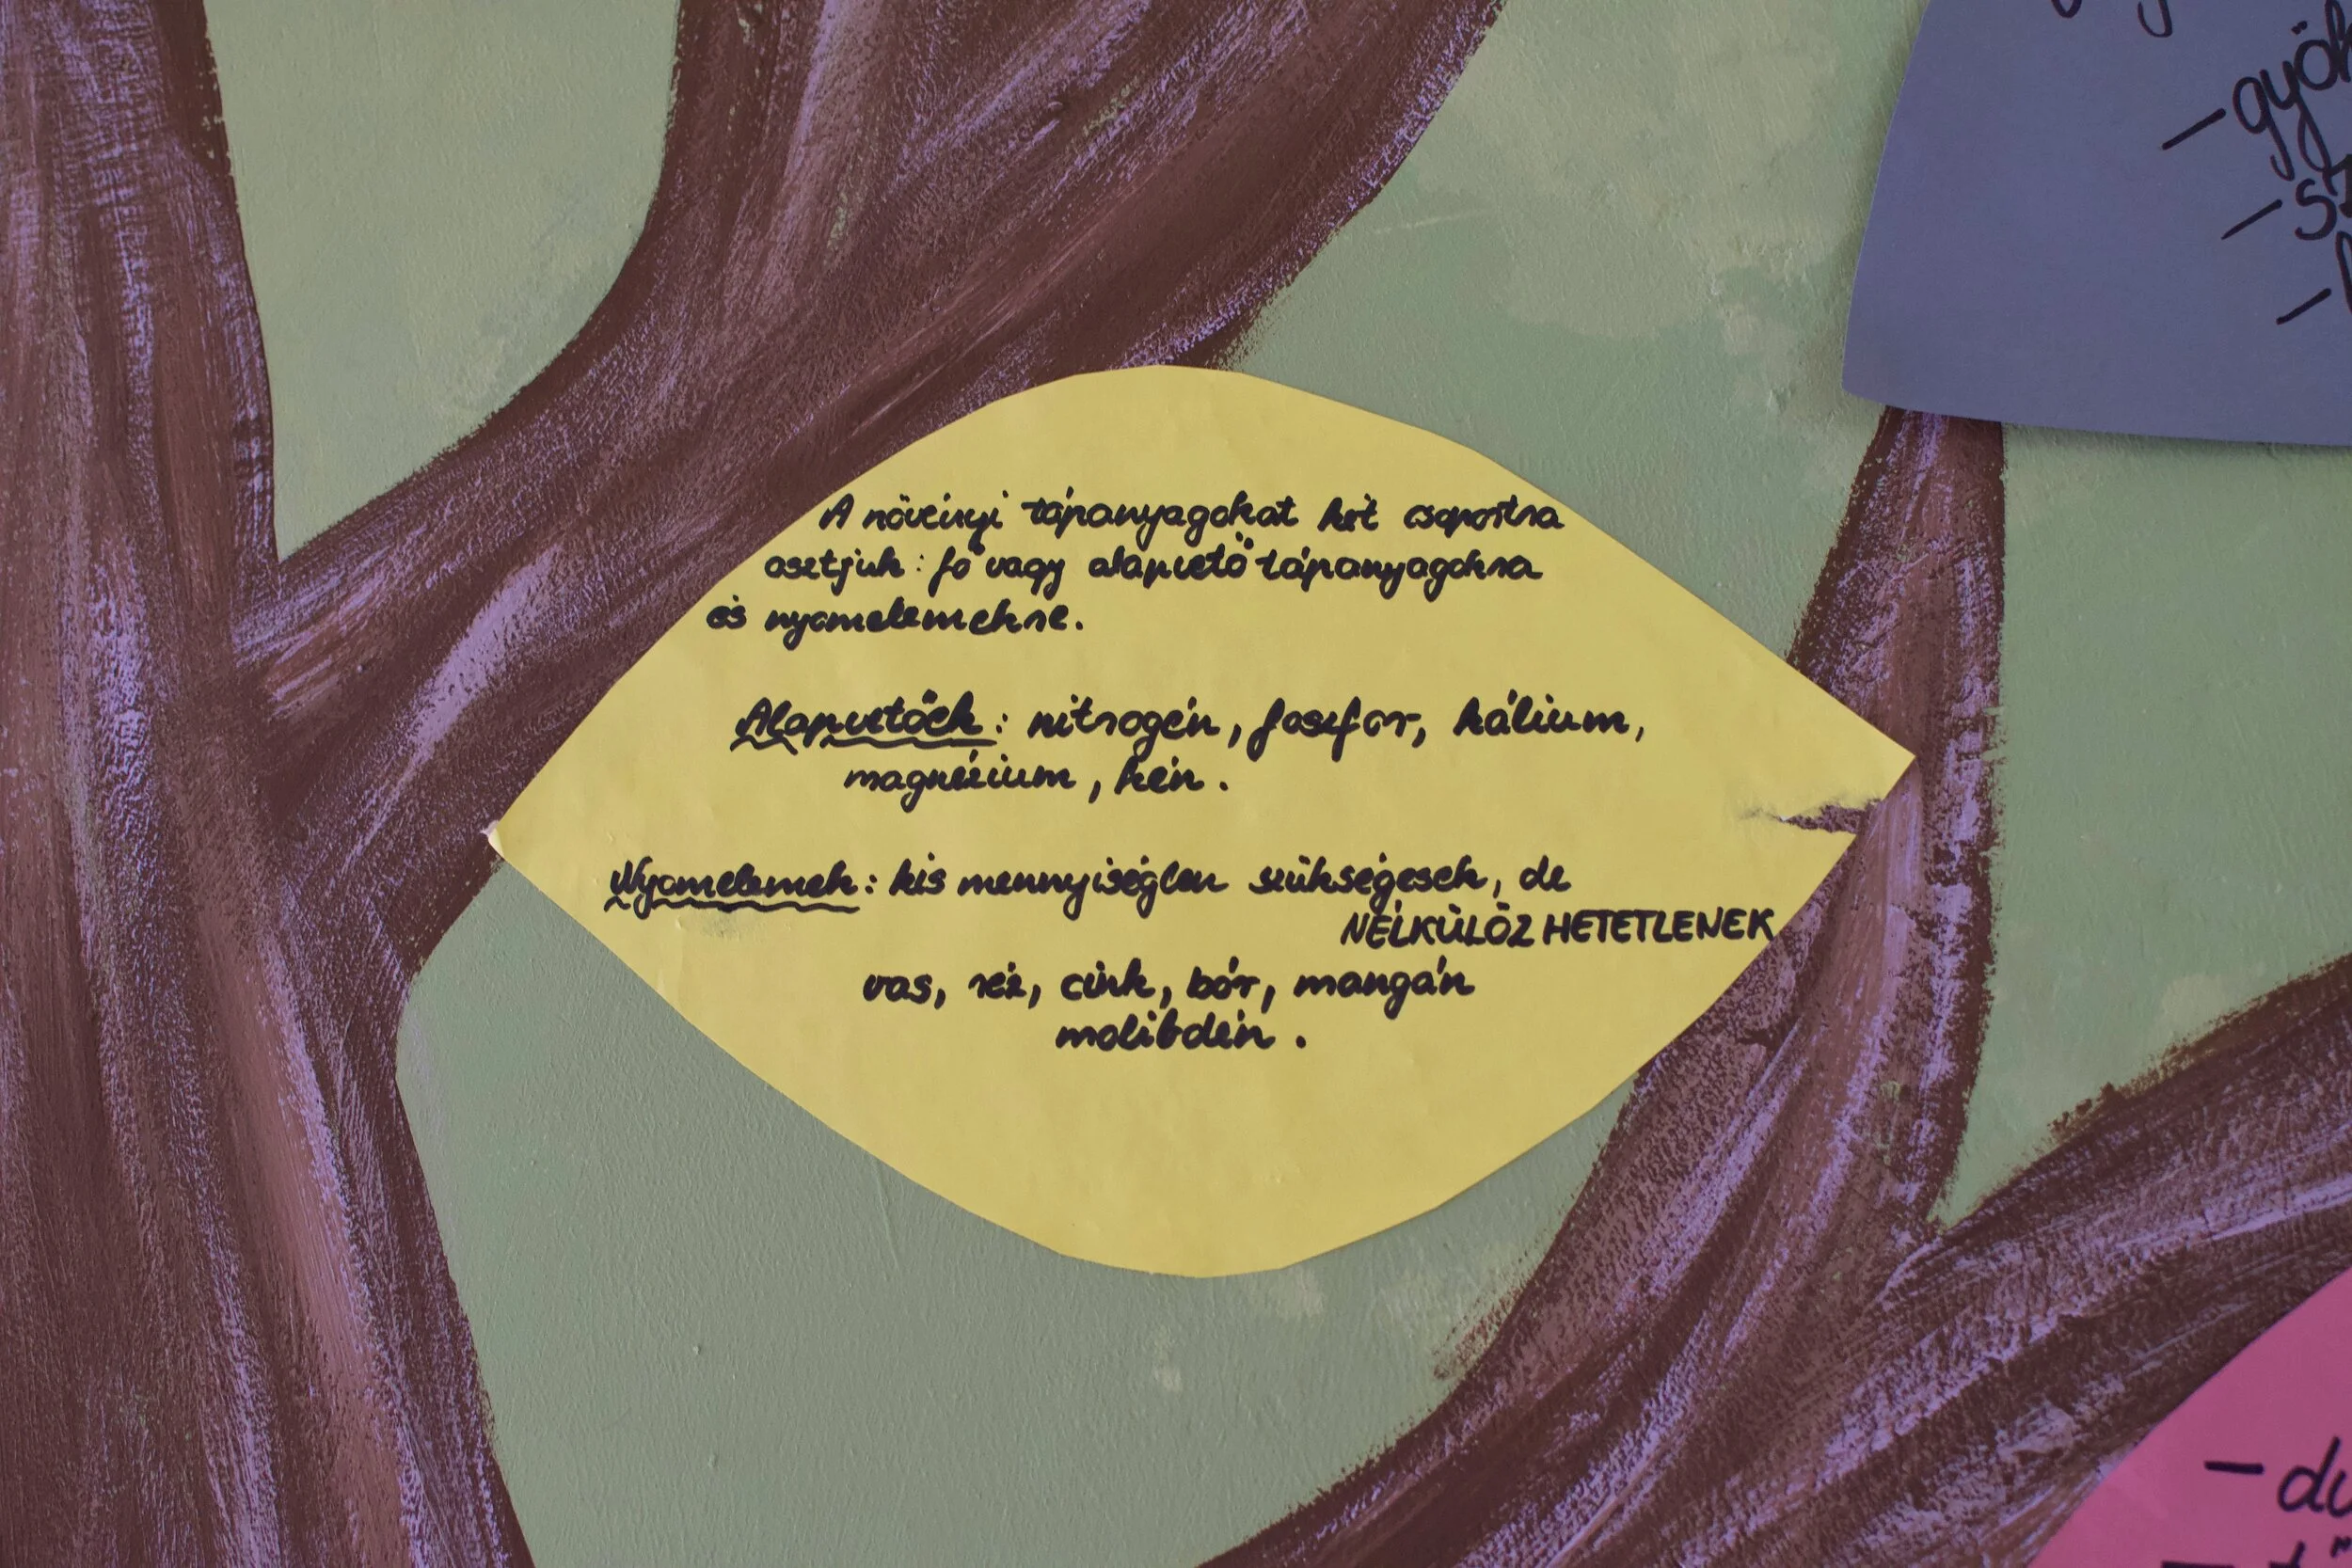 A növényi tápanyagokat két csoportra
osztjuk: fő vagy alapvető tápanyagokra
és nyomelemekre.
Alapvetőek: nitrogén, foszfor, kálium,
magnézium, kén.
Nyomelemek: kis mennyiségben szükségesek, de
NÉLKÜLÖZHETETLENEK
vas, réz, cink, bór, mangán
molibdén.